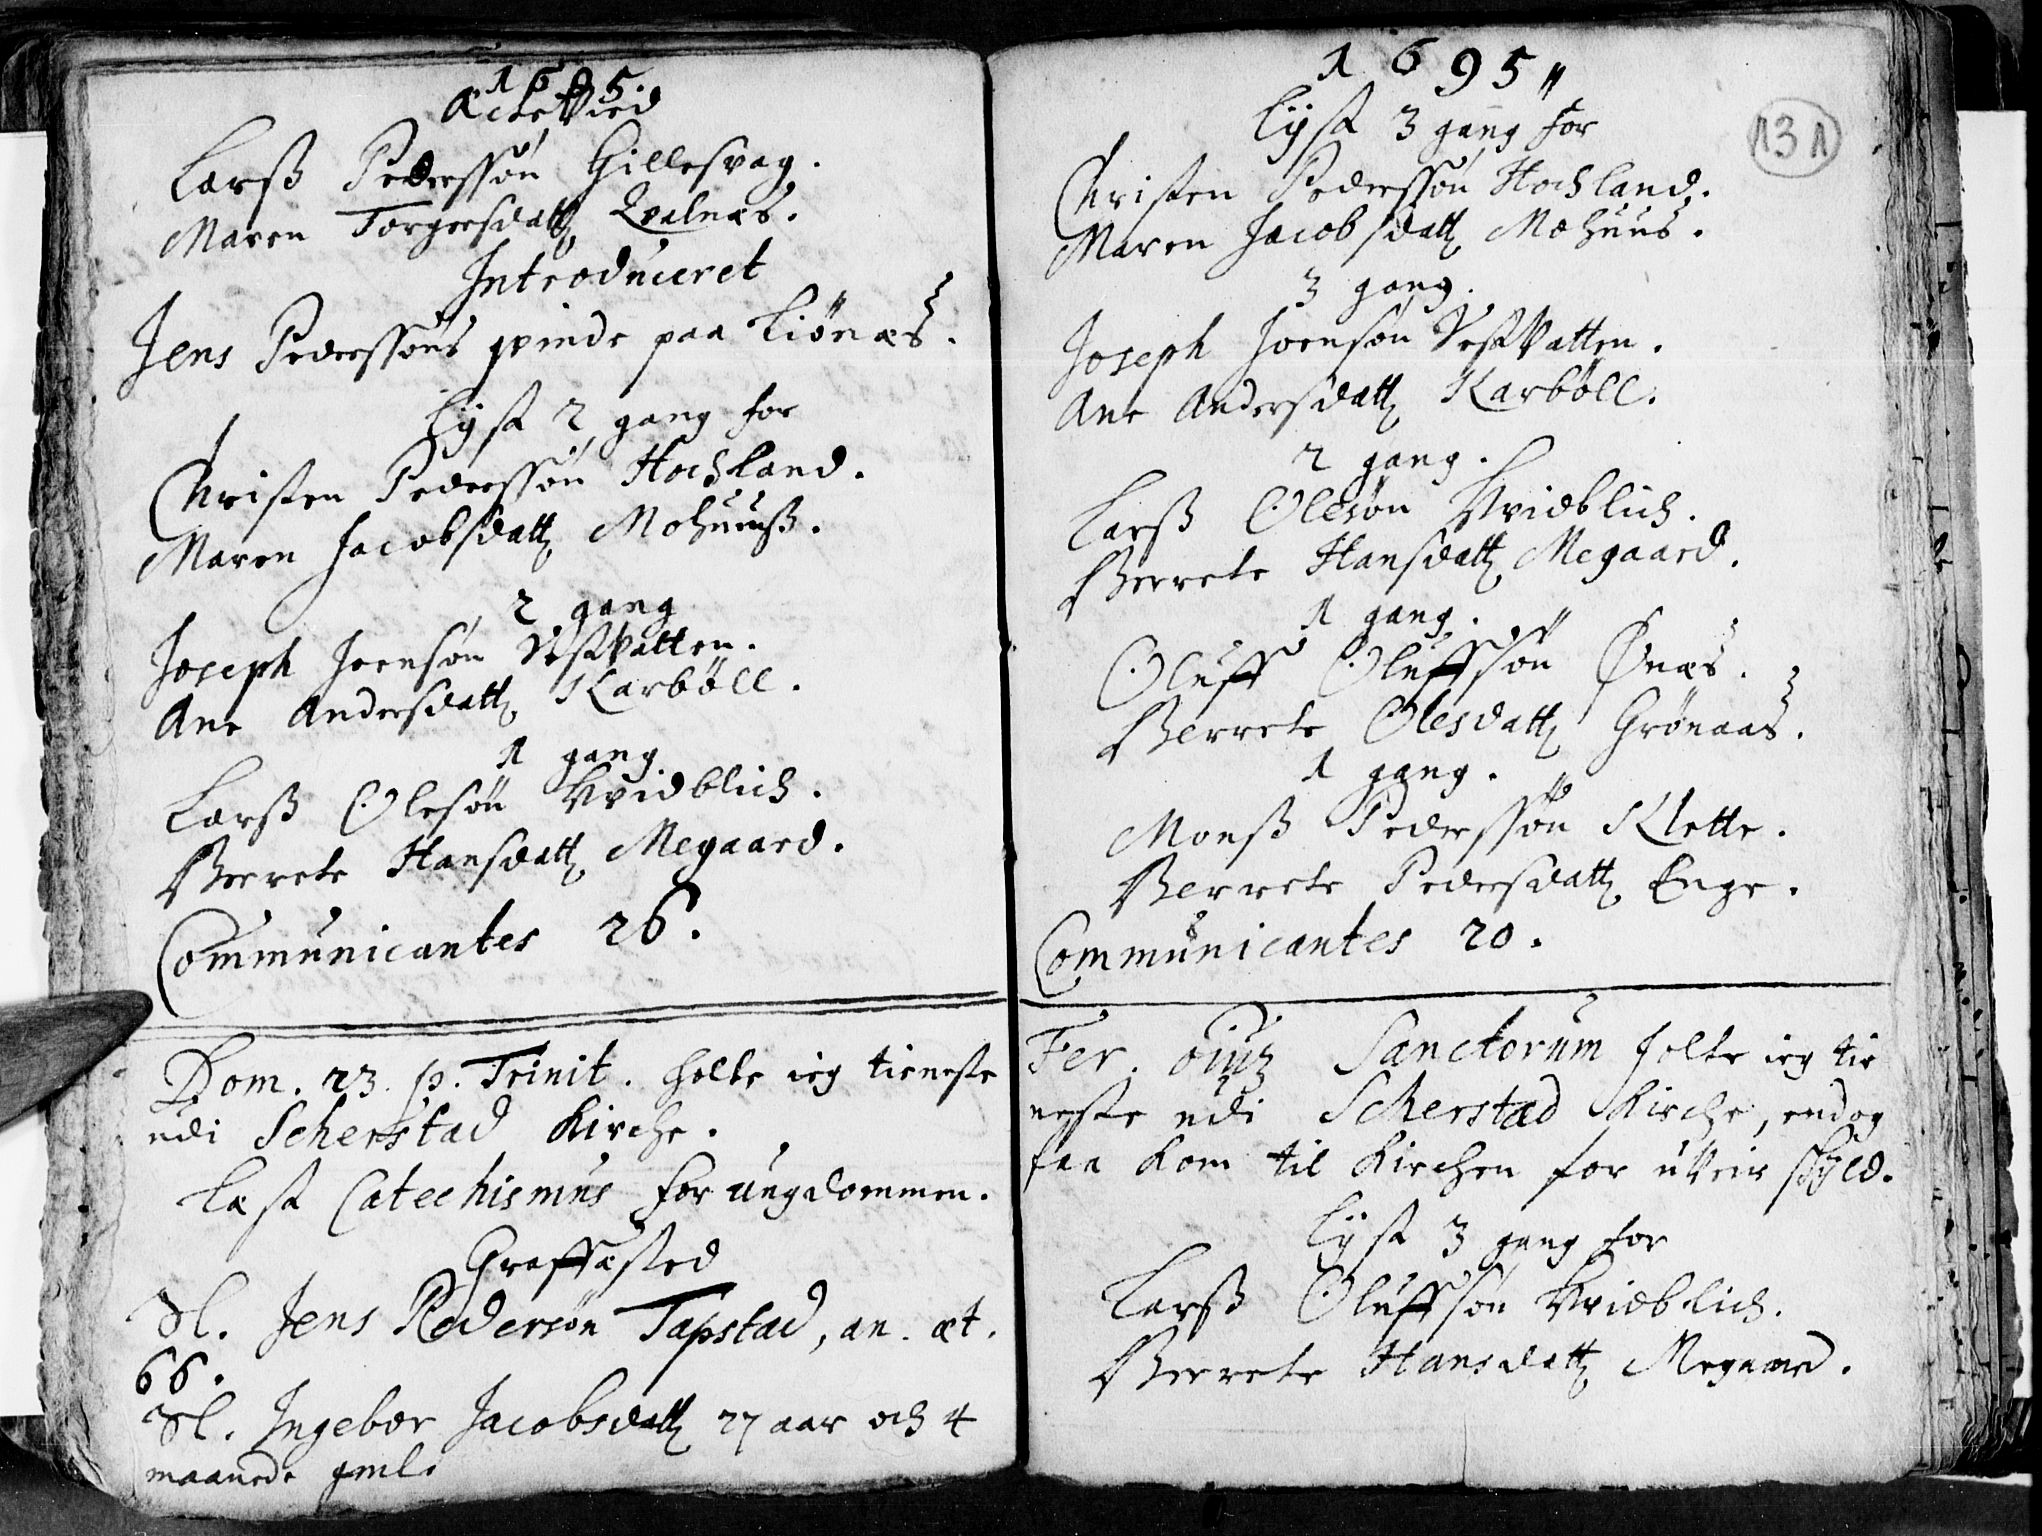 1695
Ächte Vied
Larß Pederssøn Gillesvag.
Maren Torgersdatt Qvalnæs.
Introduceret
Jens Pederssøns qvinde paa Liønæs.
Lyst 2 gang for
Christen Pederssøn Hochland.
Maren Jacobsdatt Mohuuß.
2 gang
Joseph Joensøn Vestvatten.
Ane Andersdatt Karbøll.
1 gang
Larß Olesøn Hvidblich.
Berrete Hansdatt Megaard.
Communicantes 26.
Dom. 23. p. Trinit. holte ieg tieneste
udi Scherstad Kirche.
Læst Catechismus for ungdommen.
Graffæsted
Sl. Jens Pedersøn Tapstad, an. æt.
66.
Sl. Ingebor Jacobsdatt 27 aar och 4
maanede gml.
1695
131
Lyst 3 gang for
Christen Pederssøn Hochland.
Maren Jacobsdatt Mohuus.
3 gang.
Joseph Joensøn Vestvatten.
Ane Andersdatt Karbøll.
2 gang.
Larß Olesøn Hvidblich.
Berrete Hansdatt Megaard.
1 gang.
Oluff Oluffsøn Ønæs.
Berrete Olesdatt Grønaas.
1 gang.
Monß Pederssøn Klette.
Berrete Pedersdatt Enge.
Communicantes 20.
Fer. oiuz Sanctorum holte ieg tie
neste udi Scherstad Kirche, endog
faa kom til Kirchen for uveir skyld.
Lyst 3 gang for
Larß Oluffsøn Hvidblich.
Berrete Hansdatt Megaard.